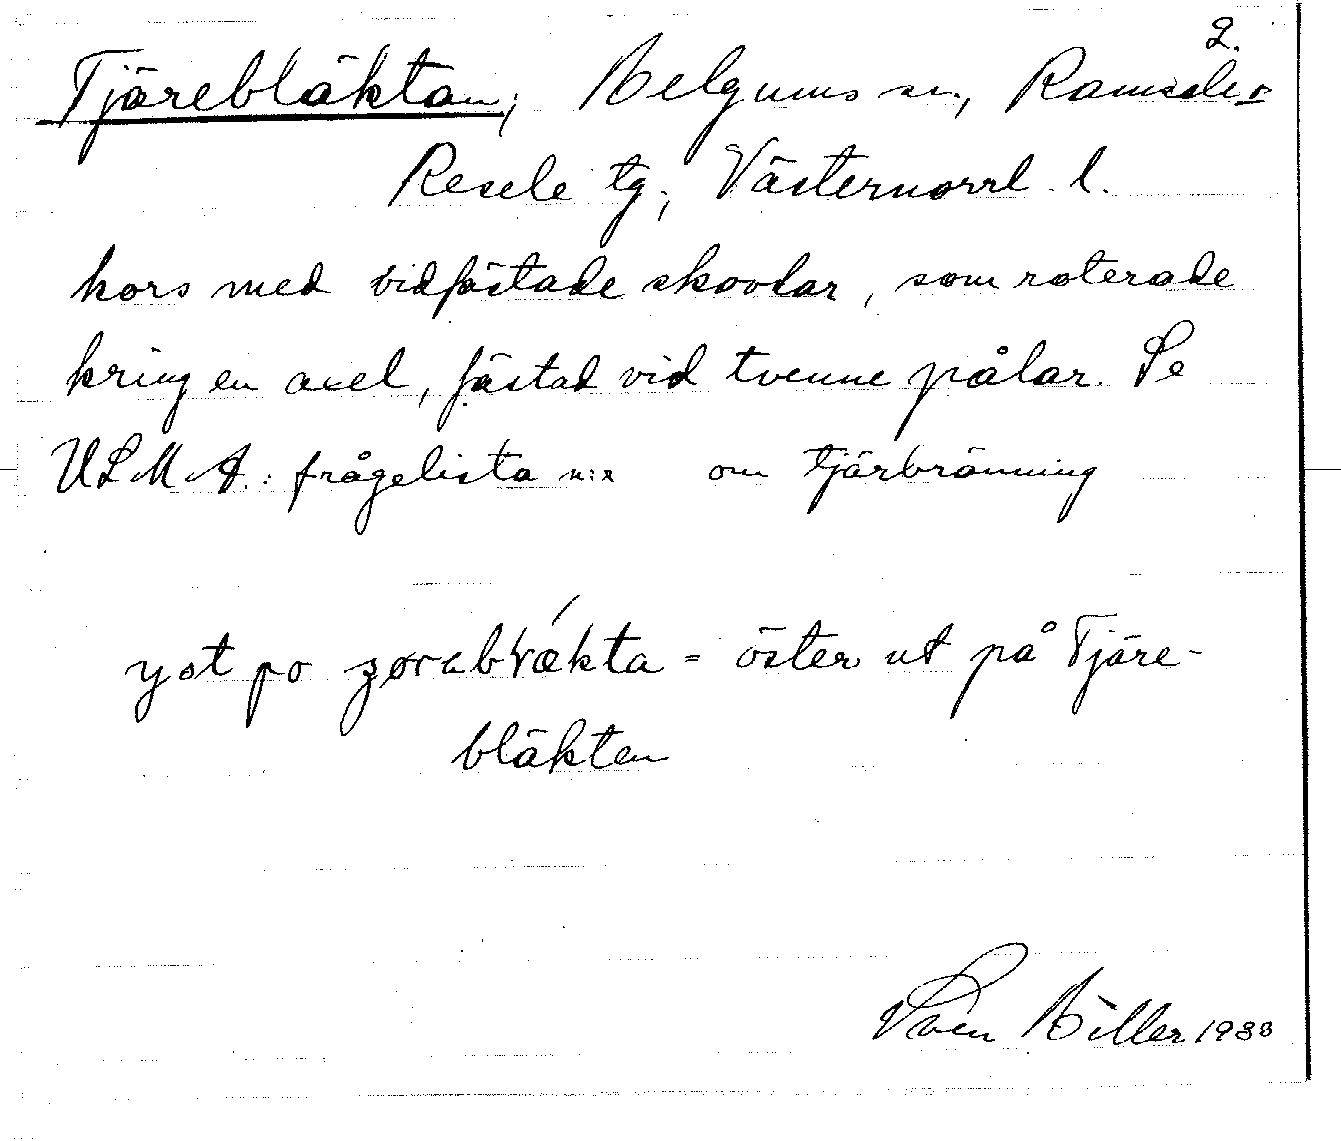 2.
Tjärebläktan; Helgums sn., Ramsele o
Resele tg; Västernorrl. l.
kors med vidfästade skovlar, som roterade
kring en axel, fästad vid tvenne pålar. Se
ULMA: frågelista n:r om tjärbränning
öster ut på Tjäre-
bläkten
Sven Hiller 1933